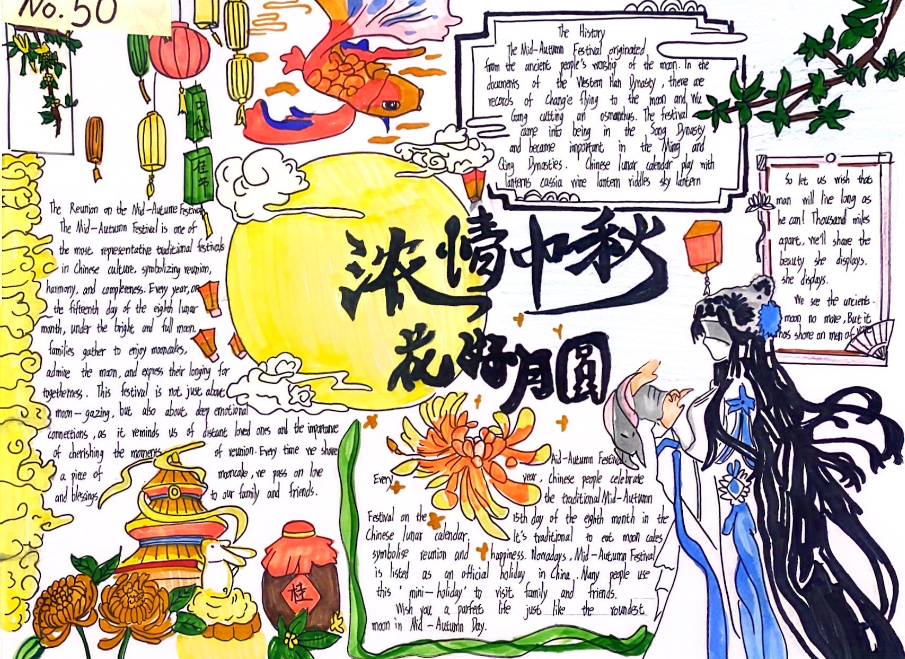 No.50
The History
The Mid-Autumn Festival originated
from the ancient people's worship of the moon. In the
documents of the Western Han Dynasty, there are
records of Chang'e flying to the moon and Wu
Gang cutting an osmanthus. The festival
came into being in the Song Dynasty
and became important in the Ming and
Qing Dynasties. Chinese lunar calendar play with
lanterns cassia wine lantern riddles sky lantern
So let us wish that
man will live long as
he can! Thousand miles
apart, we'll share the
beauty she displays.
she displays.
We see the ancient
moon no more, But it
has shone on men of
浓情中秋
花好月圆
The Reunion on the Mid-Autumn Festival
The Mid-Autumn Festival is one of
the most representative traditional festivals
in Chinese culture, symbolizing reunion,
harmony, and completeness. Every year, on
the fifteenth day of the eighth lunar
month, under the bright and full moon
families gather to enjoy mooncakes,
admire the moon, and express their longing for
togetherness. This festival is not just about
moon-gazing, but also about deep emotional
connections, as it reminds us of distant loved ones and the importance
of cherishing the moments of reunion. Every time we share
a piece of mooncake, we pass on love
and blessings to our family and friends.
Mid-Autumn Festival
Every year, Chinese people celebrate
the traditional Mid-Autumn
Festival on the 15th day of the eighth month in the
Chinese lunar calendar. It's traditional to eat moon cakes
symbolise reunion and happiness. Nowadays, Mid-Autumn Festival
is listed as an official holiday in China. Many people use
this 'mini-holiday' to visit family and friends.
Wish you a perfect life just like the roundest
moon in Mid-Autumn Day.
桂